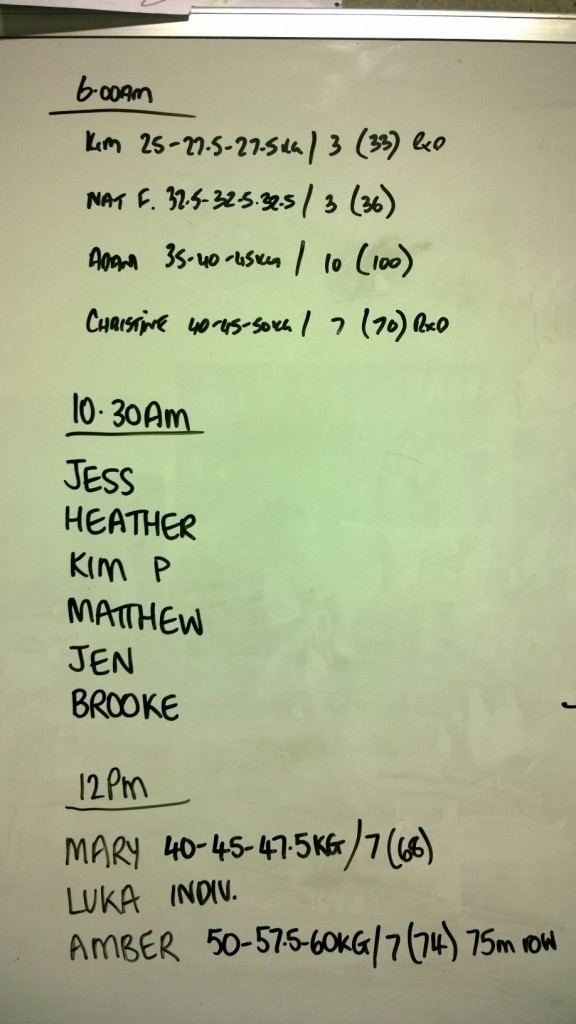 6.00AM
KIM 25-27.5-27.5KG / 3 (33) RxD
NAT F. 32.5-32.5.32.5 / 3 (36)
ADAM 35-40-45KG / 10 (100)
CHRISTINE 40-45-50KG / 7 (70) RxD
10.30AM
JESS
HEATHER
KIM P
MATTHEW
JEN
BROOKE
12PM
MARY 40-45-47.5KG / 7 (68)
LUKA INDIV.
AMBER 50-57.5-60KG / 7 (74) 75m row